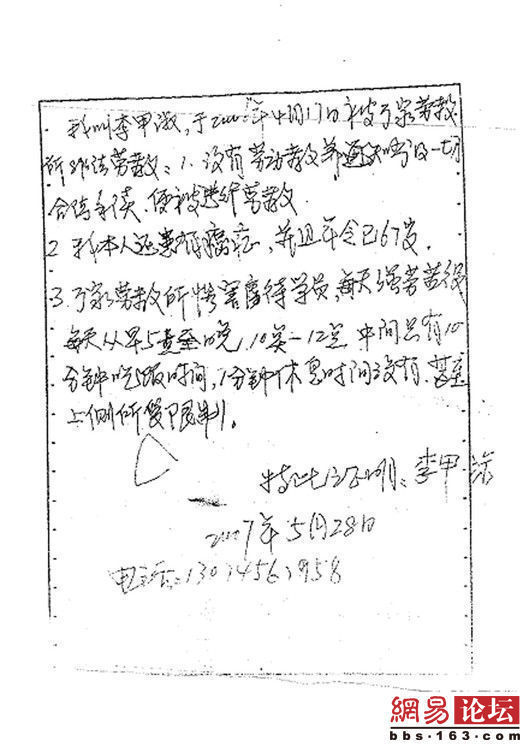 我叫李甲淑,于200年4月17日被万家劳教
所非法劳教、1.没有劳动教养通知书没一切
合法手续,便被进行劳教
2 我本人还患有癌症,并且年令已67岁。
3.万家劳教所惨害虐待学员,每天强劳苦役
每天从早5点至晚,10点-12点 中间只有10
分钟吃饭时间,1分钟休息时间没有、甚至
上侧所受限制。
特此证明、李甲
2007年5月28日
电话:
網易 论坛
bbs·163.com